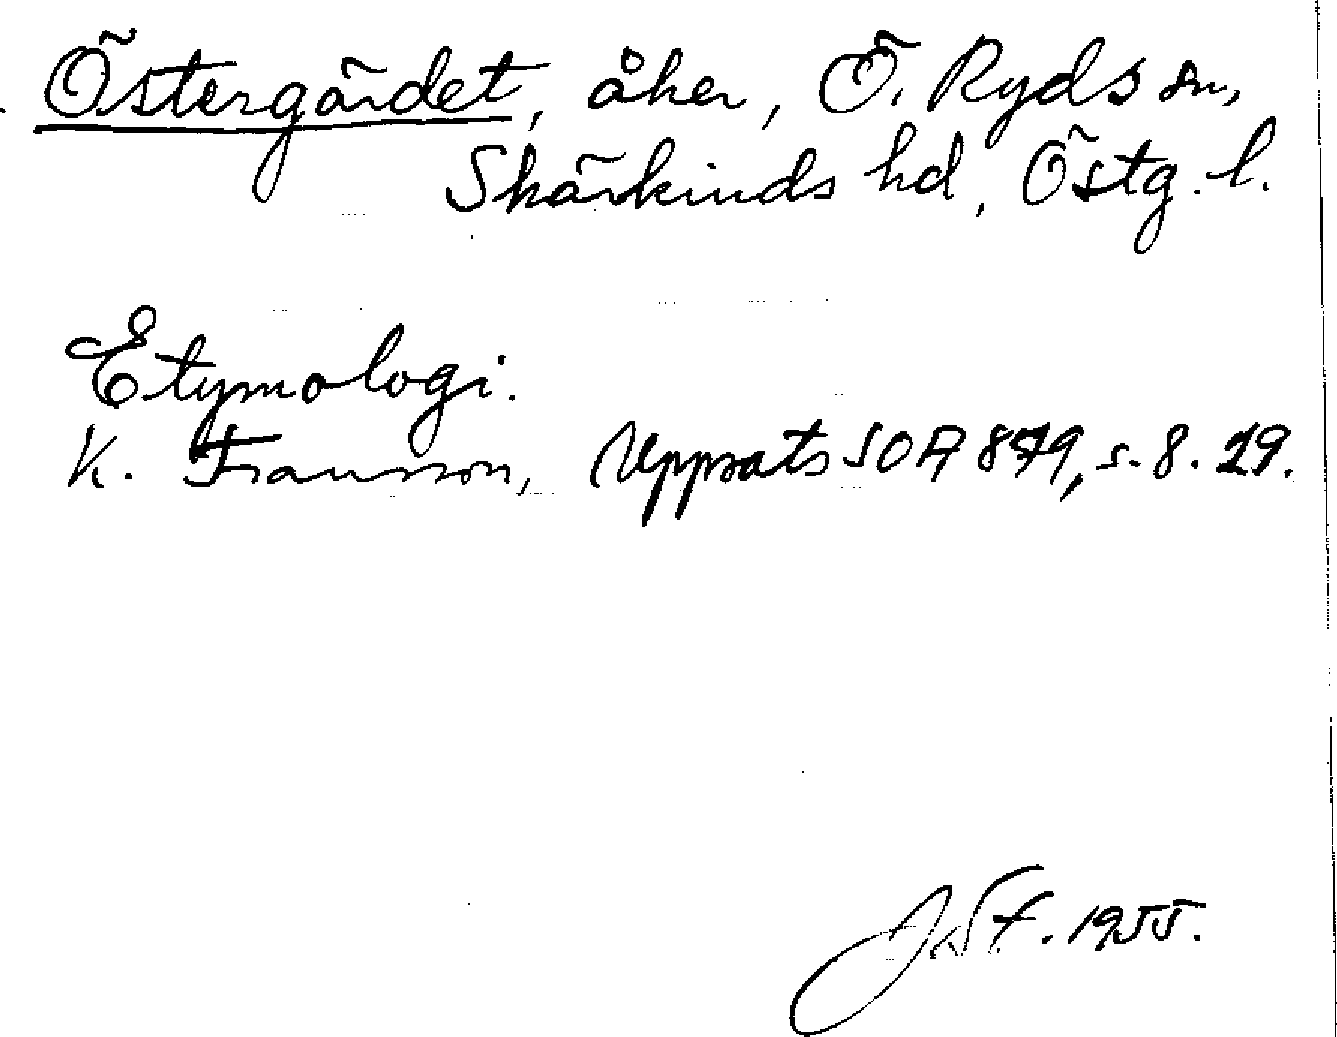 Östergärdet, åker, Ö. Ryds sn,
Skärkinds hd, Östg. l.
Etymologi.
K. Fransson, Uppsats SOA 879, s. 8. 29.
1955.